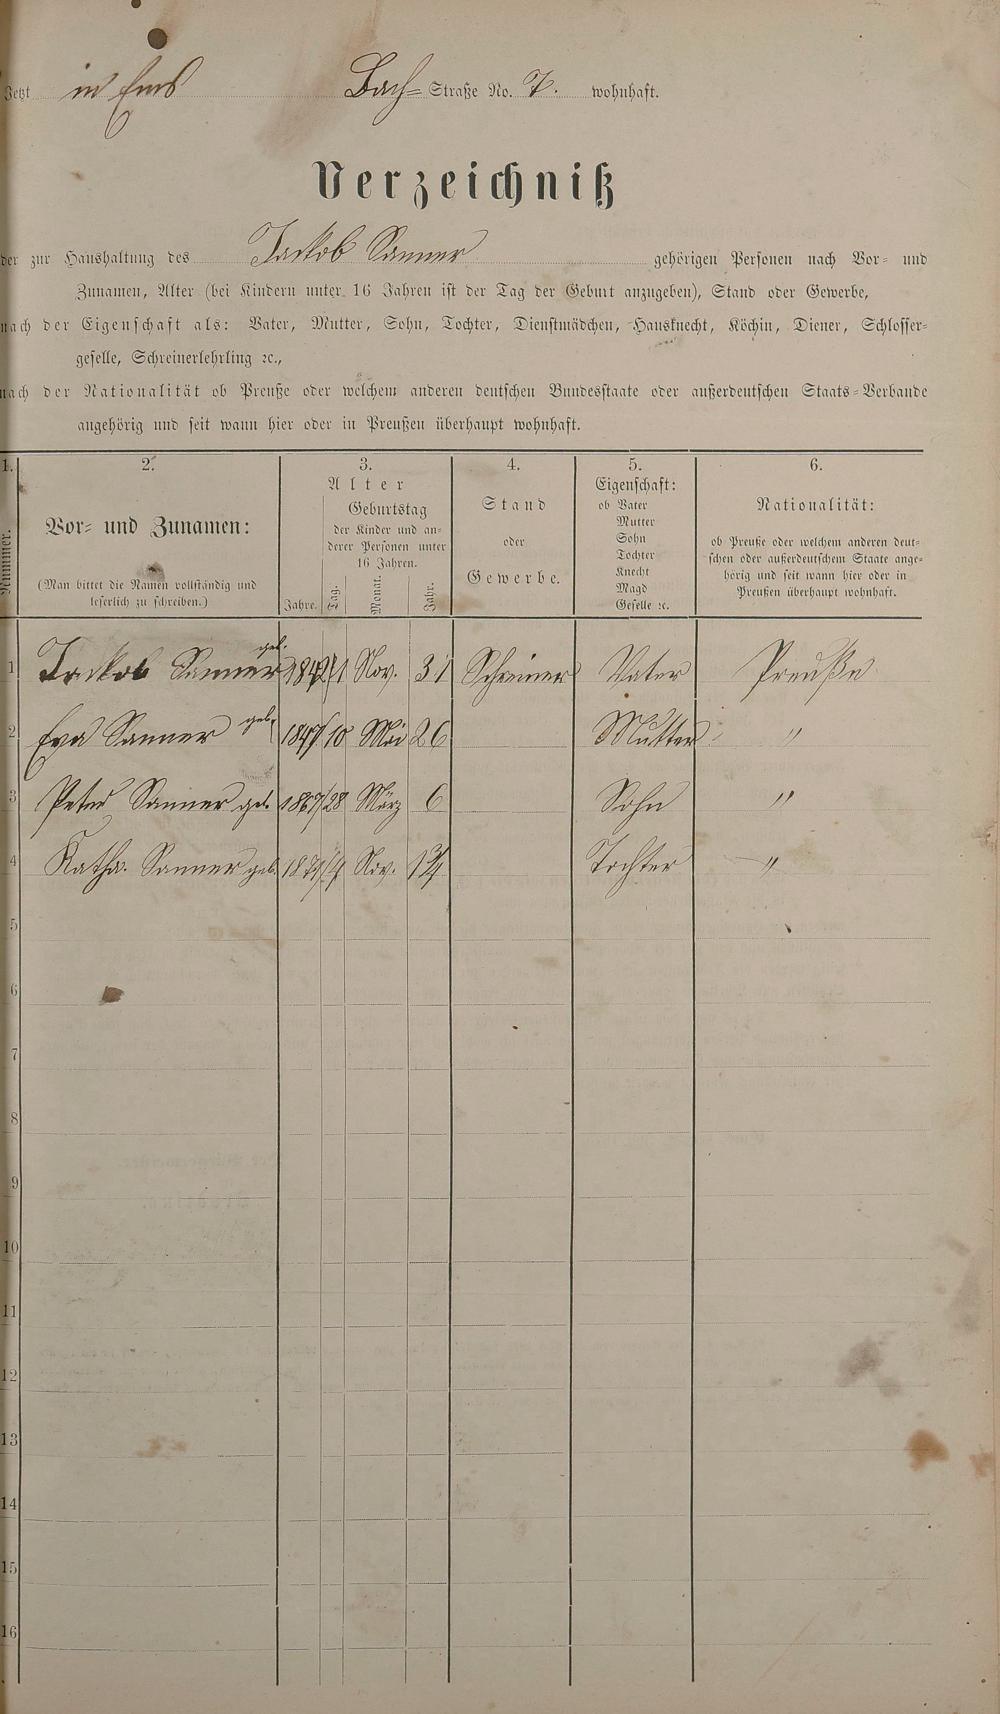 Jetzt in Ems Bach= Straße No. 7. wohnhaft.
Verzeichniß
der zur Haushaltung des Jackob Sanner gehörigen Personen nach Vor= und
Zunamen, Alter (bei Kindern unter 16 Jahren ist der Tag der Geburt anzugeben), Stand oder Gewerbe,
nach der Eigenschaft als: Vater, Mutter, Sohn, Tochter, Dienstmädchen, Hausknecht, Köchin, Diener, Schlosser=
geselle, Schreinerlehrling ꝛc.,
nach der Nationalität ob Preuße oder welchem anderen deutschen Bundesstaate oder außerdeutschen Staats=Verbande
angehörig und seit wann hier oder in Preußen überhaupt wohnhaft.
1. 2. 3. 4. 5. 6.
Nummer.
Vor= und Zunamen:
(Man bittet die Namen vollständig und
leserlich zu schreiben.)
Alter
Jahre.
Geburtstag
der Kinder und an=
derer Personen unter
16 Jahren.
Tag. Monat. Jahr.
Stand
oder
Gewerbe.
Eigenschaft:
ob Vater
Mutter
Sohn
Tochter
Knecht
Magd
Geselle ꝛc.
Nationalität:
ob Preuße oder welchem anderen deut=
schen oder außerdeutschem Staate ange=
hörig und seit wann hier oder in
Preußen überhaupt wohnhaft.
1 Jackob Sanner geb. Nov. 31 Schreiner Vater Preuße
2 Eva Sanner geb. 1847 10 Mai 26 Mutter "
3 Peter Sanner geb. 1867 28 März 6 Sohn "
4 Katha. Sanner geb. 1871 4 Nov. 1¾ Tochter "
5
6
7
8
9
10
11
12
13
14
15
16